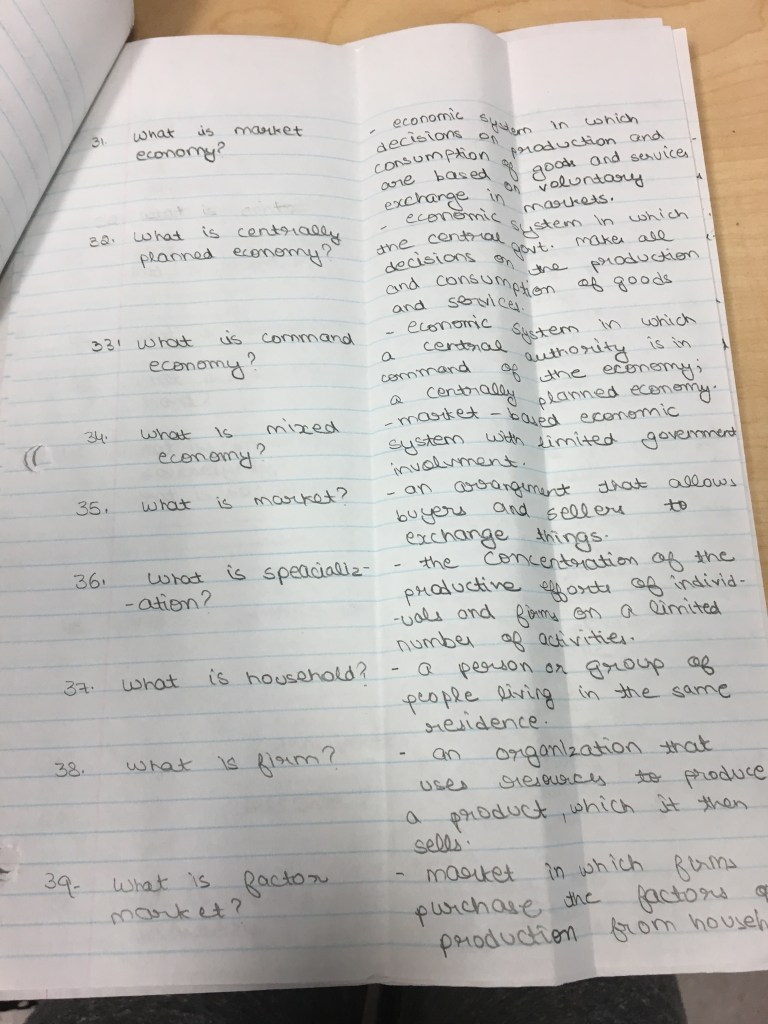 31. What is market
economy?
- economic system in which
decisions on production and
consumption of goods and services
are based on voluntary
exchange in markets.
32. What is centrally
planned economy?
- economic system in which
the central govt. makes all
decisions on the production
and consumption of goods
and services.
33! What is command
economy?
- economic system in which
a central authority is in
command of the economy;
a centrally planned economy.
34. What is mixed
economy?
- market-based economic
system with limited government
involvment.
35. What is market?
- an arrangment that allows
buyers and sellers to
exchange things.
36. What is speacializ-
-ation?
- the concentration of the
productive efforts of individ-
-uals and firms on a limited
number of activities.
37. What is household?
- a person or group of
people living in the same
residence.
38. What is firm?
- an organization that
uses resources to produce
a product, which it then
sells.
39- What is factor
market?
- market in which firms
purchase the factors o
production from househ